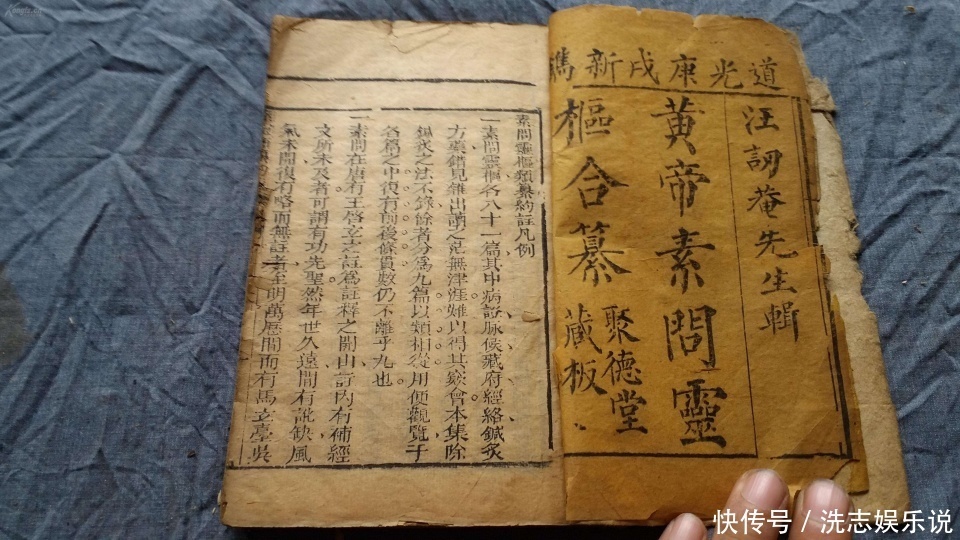 道光庚戌新鐫
汪訒菴先生輯
黄帝素問靈
樞合纂
聚德堂
藏板
素問靈樞類纂約註凡例
一素問靈樞各八十一篇其中病證脉候藏府經絡鍼灸
方藥錯見雜出讀之茫無津涯難以得其窾會本集除
鍼灸之法不錄餘者分爲九篇以類相從用便觀覽于
各篇之中復有前後條貫數仍不離乎九也
一素問在唐有王啓玄之註爲註釋之開山註內有補經
文所未及者可謂有功先聖然年世久遠間有訛缺風
氣未開復有略而無註者至明萬曆間而有馬玄臺吳
快传号/洗志娱乐说